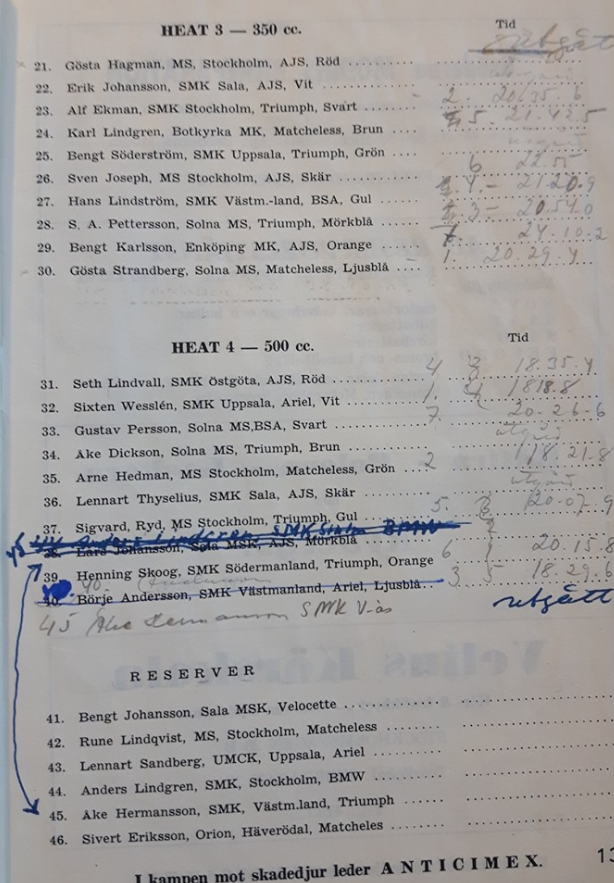 HEAT 3 — 350 cc.
Tid
utgått
21. Gösta Hagman, MS, Stockholm, AJS, Röd
22. Erik Johansson, SMK Sala, AJS, Vit
23. Alf Ekman, SMK Stockholm, Triumph, Svart 2. 20.35.6
24. Karl Lindgren, Botkyrka MK, Matcheless, Brun 5. 21.42.5
25. Bengt Söderström, SMK Uppsala, Triumph, Grön
26. Sven Joseph, MS Stockholm, AJS, Skär 6
27. Hans Lindström, SMK Västm.-land, BSA, Gul 4 – 21.20.9
28. S. A. Pettersson, Solna MS, Triumph, Mörkblå 3 – 20.54.0
29. Bengt Karlsson, Enköping MK, AJS, Orange 7. 24.10.2
30. Gösta Strandberg, Solna MS, Matcheless, Ljusblå 1. 20.29.4
HEAT 4 — 500 cc.
Tid
31. Seth Lindvall, SMK Östgöta, AJS, Röd 4 18.35.4
32. Sixten Wesslén, SMK Uppsala, Ariel, Vit 1. 18 18.8
33. Gustav Persson, Solna MS,BSA, Svart 7 20-26-6
34. Åke Dickson, Solna MS, Triumph, Brun
35. Arne Hedman, MS Stockholm, Matcheless, Grön 2 18.21.8
36. Lennart Thyselius, SMK Sala, AJS, Skär
37. Sigvard, Ryd, MS Stockholm, Triumph, Gul 5. 20.07.9
44 Anders Lindgren SMK Sthlm BMW
38. Lars Johansson, Sala MSK, AJS, Mörkblå 20.15.8
39. Henning Skoog, SMK Södermanland, Triumph, Orange 6 1
40. Andersson
40. Börje Andersson, SMK Västmanland, Ariel, Ljusblå 3 5 18.29.6
45 Åke Hermansson SMK V-ås utgått
RESERVER
41. Bengt Johansson, Sala MSK, Velocette
42. Rune Lindqvist, MS, Stockholm, Matcheless
43. Lennart Sandberg, UMCK, Uppsala, Ariel
44. Anders Lindgren, SMK, Stockholm, BMW
45. Åke Hermansson, SMK, Västm.land, Triumph
46. Sivert Eriksson, Orion, Häverödal, Matcheles
I kampen mot skadedjur leder ANTICIMEX.
13